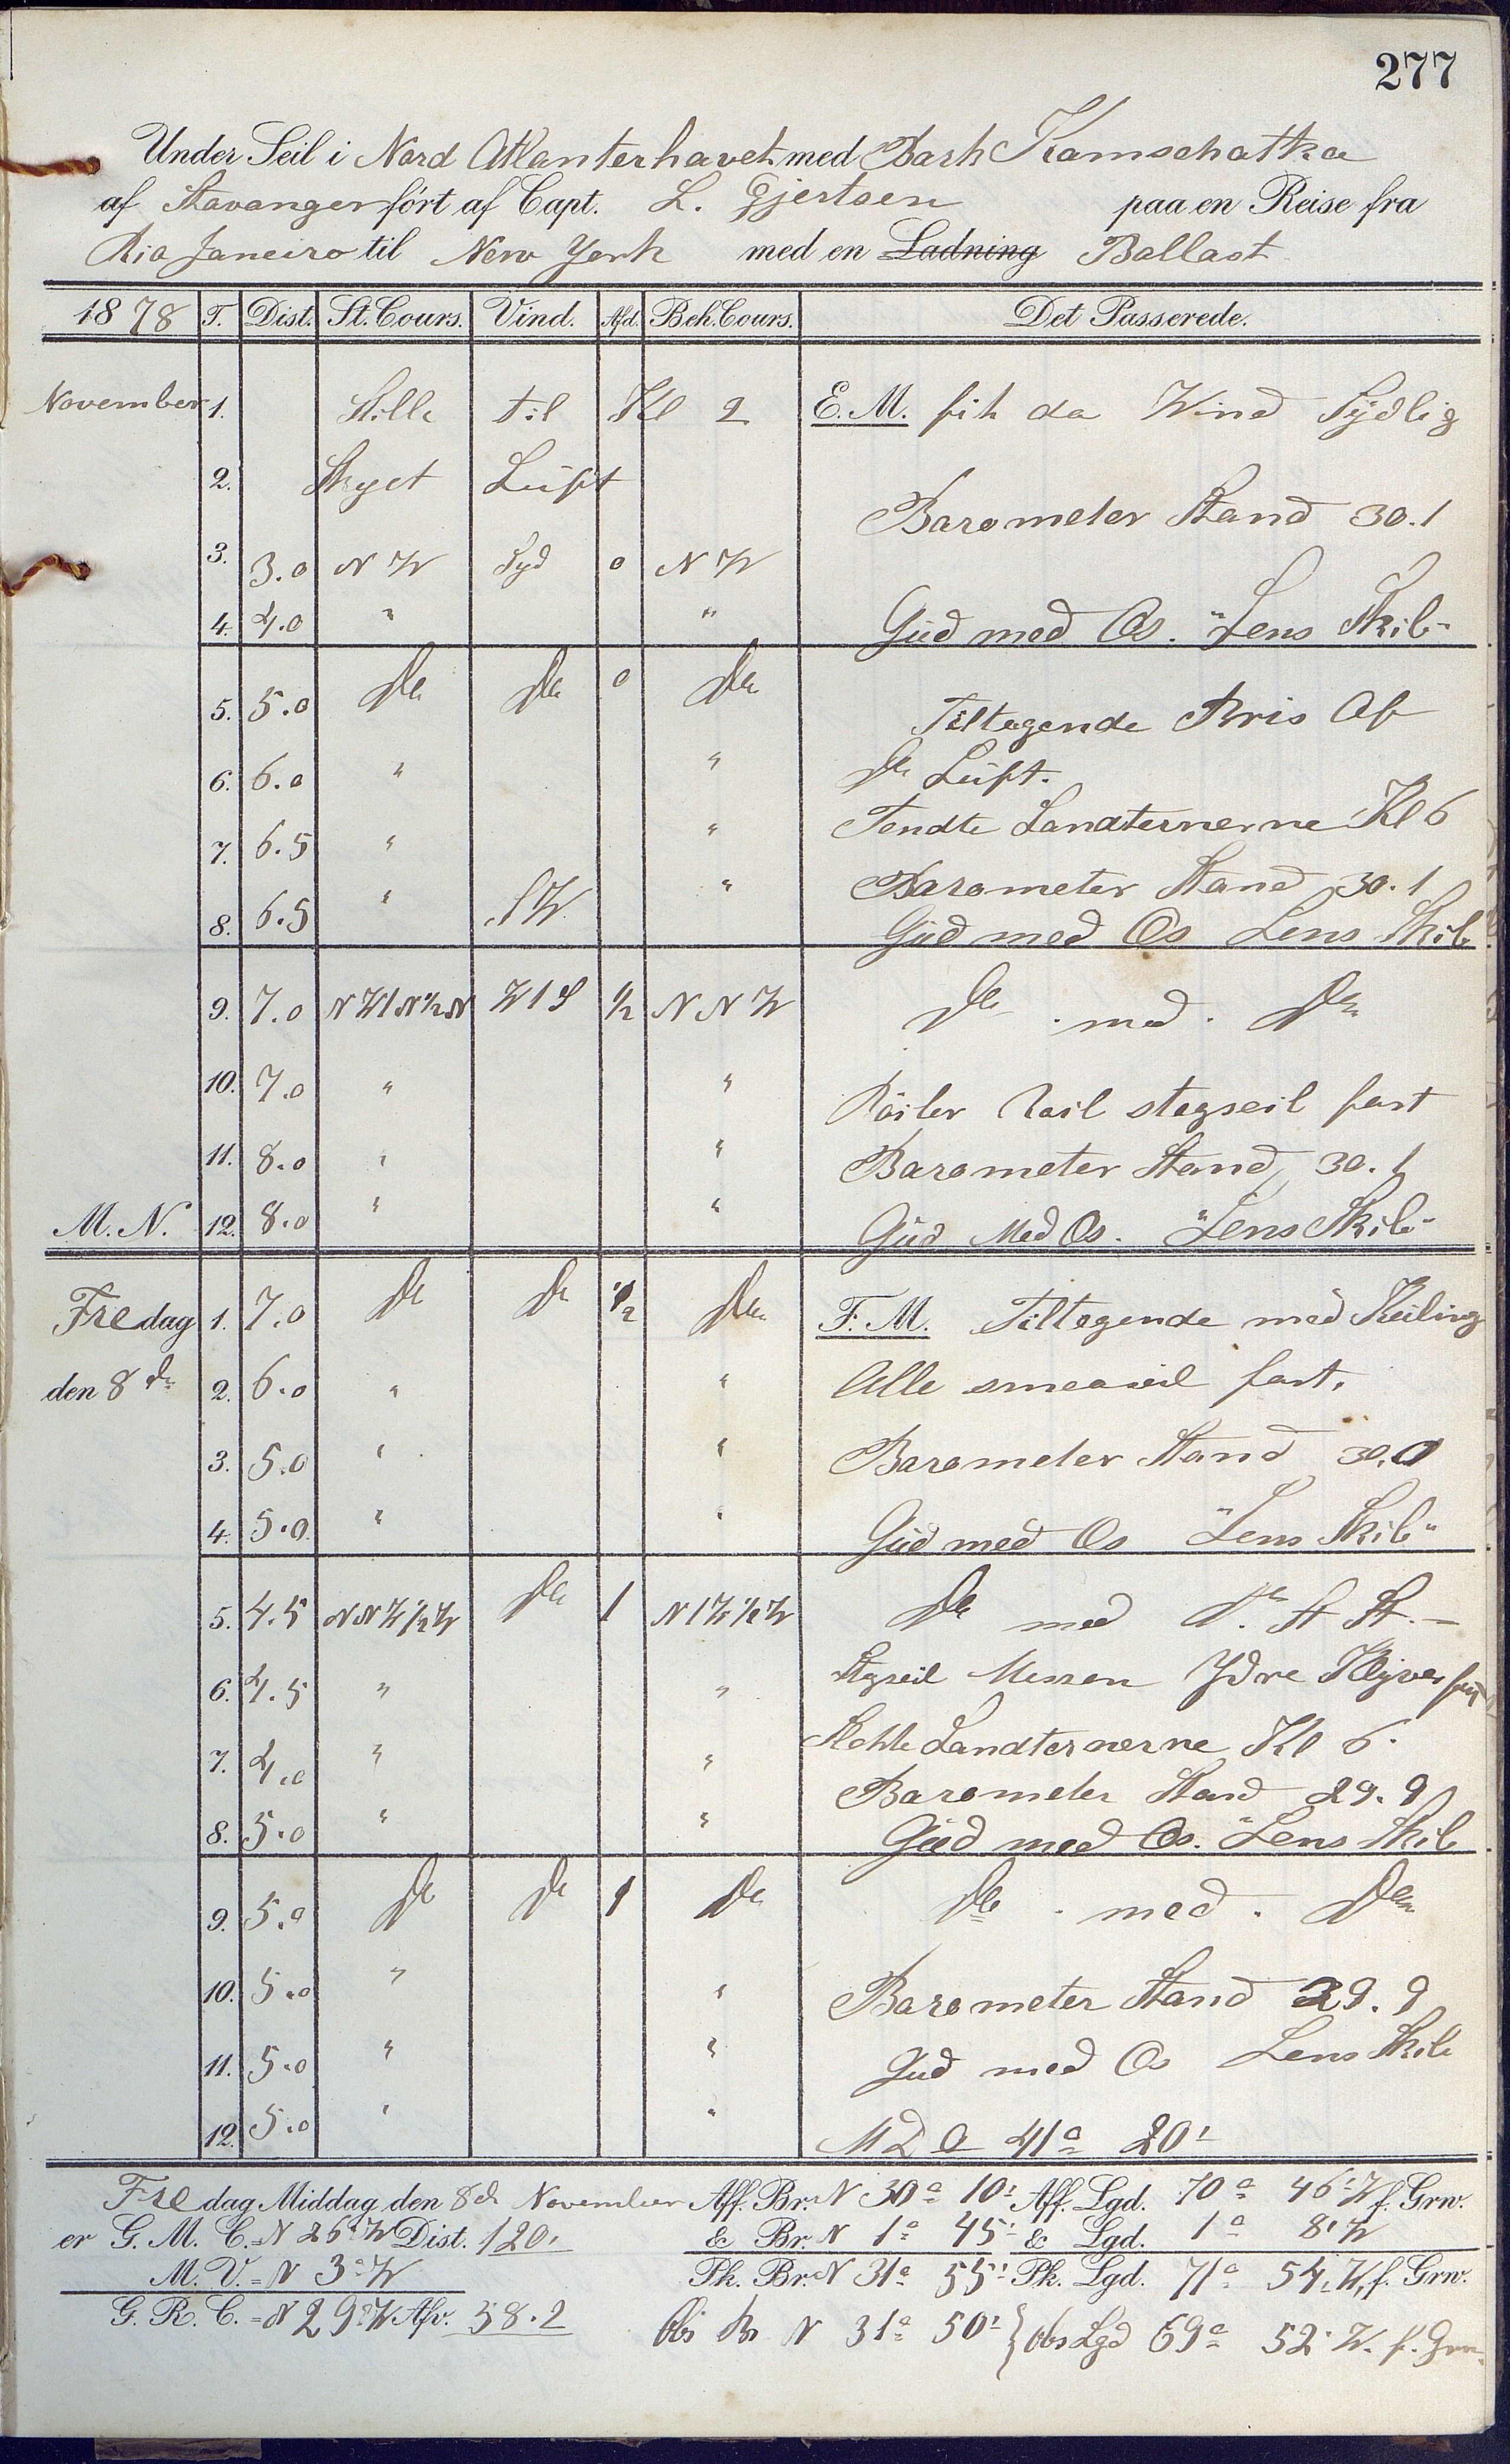 277
Under Seil i Nord Atlanterhavet med Bark Kamschatka
af Stavanger ført af Capt. L. Gjertsen paa en Reise fra
Rio Janeiro til New York med en Ladning Ballast
1878 T. Dist. St. Cours. Vind. Afd. Beh. Cours. Det Passerede.
November 1. Stille til Kl 2 E.M. fik da Wind Sydlig
2. Skyet Luft
Barometer Stand 30.1
3. 3.0 N W Syd 0 N W
4. 4.0 " " Gud med Os. "Lens Skib"
5. 5.0 Do Do 0 Do Tiltagende Bris Af
6. 6.0 " " Do Luft.
7. 6.5 " " Tendte Landternerne Kl 6
8. 6.5 " S W " Barometer Stand 30.1
Gud med Os Lens Skib
9. 7.0 N W 1 N ½ N W 1 S ½ N N W Do . med . Do
10. 7.0 " " Röiler stagseil fast
11. 8.0 " " Barometer Stand 30.1
M. N. 12. 8.0 " " Gud Med Os. "Lens Skib"
Fredag 1. 7.0 Do Do ½ Do F. M. Tiltagende med Kuling
den 8de 2. 6.0 " " Alle smaaseil fast.
3. 5.0 " " Barometer Stand 30.0
4. 5.0 " " Gud med Os "Lens Skib"
5. 4.5 N N W ½ W Do 1 N 1 W ½ W Do med Do. St St. —
6. 4.5 " " Stagseil Messan Ydre Klyver fast
7. 4.0 " " Slukte Landternerne Kl 6.
8. 5.0 " " Barometer Stand 29.9
Gud med Os. "Lens Skib
9. 5.0 Do Do 1 Do Do . med . Do
10. 5.0 " " Barometer Stand 29.9
11. 5.0 " " Gud med Os Lens Skib
12. 5.0 " " M D 41° 20'
Fredag Middag den 8de November Aff. Br. N 30° 10' Aff. Lgd. 70° 46' W f. Grw.
er G. M. C. N 26° W Dist. 120' & Br. N 1° 45' & Lgd. 1° 8' W
M. V. = N 3° W Pk. Br. N 31° 55' Pk. Lgd. 71° 54' W, f. Grw.
G. R. C. = N 29° W Afv. 58.2 Obs Br N 31° 50' } Obs Lgd 69° 52' W. f. Grw.